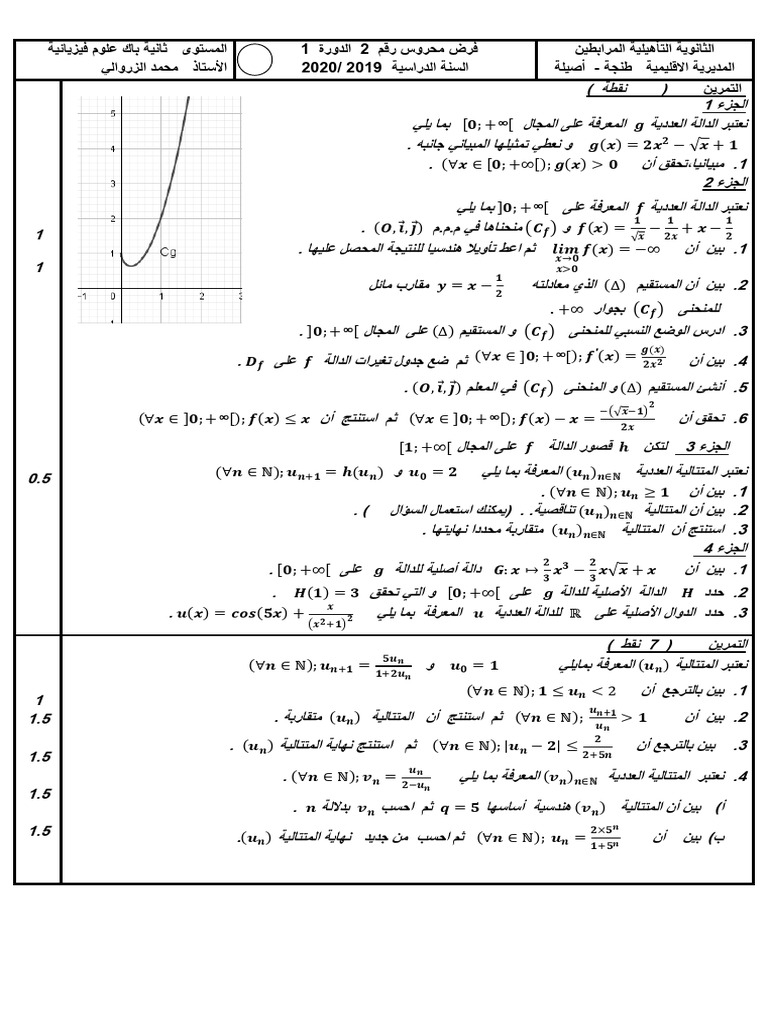 الثانوية التأهيلية المرابطين
المديرية الاقليمية طنجة - أصيلة
فرض محروس رقم 2 الدورة 1
السنة الدراسية 2019 /2020
المستوى ثانية باك علوم فيزيائية
الأستاذ محمد الزروالي
التمرين ( نقطة )
الجزء 1
نعتبر الدالة العددية g المعرفة على المجال [0; +∞[ بما يلي
g(x) = 2x² − √x + 1 و نعطي تمثيلها المبياني جانبه .
1. مبيانيا،تحقق أن (∀x ∈ [0; +∞[); g(x) > 0 .
الجزء 2
نعتبر الدالة العددية f المعرفة على ]0; +∞[ بما يلي
f(x) = 1/√x − 1/2x + x − 1/2 و (C_f) منحناها في م.م.م (O, i⃗, j⃗) .
1. بين أن lim f(x) = −∞ x→0 x>0 ثم اعط تأويلا هندسيا للنتيجة المحصل عليها .
2. بين أن المستقيم (Δ) الذي معادلته y = x − 1/2 مقارب مائل
للمنحنى (C_f) بجوار +∞ .
3. ادرس الوضع النسبي للمنحنى (C_f) و المستقيم (Δ) على المجال ]0; +∞[ .
4. بين أن (∀x ∈ ]0; +∞[); f′(x) = g(x)/2x² ثم ضع جدول تغيرات الدالة f على D_f .
5. أنشئ المستقيم (Δ) و المنحنى (C_f) في المعلم (O, i⃗, j⃗) .
6. تحقق أن (∀x ∈ ]0; +∞[); f(x) − x = −(√x−1)²/2x ثم استنتج أن (∀x ∈ ]0; +∞[); f(x) ≤ x
الجزء 3 لتكن h قصور الدالة f على المجال [1; +∞[
نعتبر المتتالية العددية (u_n)_n∈ℕ المعرفة بما يلي u_0 = 2 و (∀n ∈ ℕ); u_n+1 = h(u_n)
1. بين أن (∀n ∈ ℕ); u_n ≥ 1 .
2. بين أن المتتالية (u_n)_n∈ℕ تناقصية. . (يمكنك استعمال السؤال ) .
3. استنتج أن المتتالية (u_n)_n∈ℕ متقاربة محددا نهايتها .
الجزء 4
1. بين أن G: x ↦ 2/3 x³ − 2/3 x√x + x دالة أصلية للدالة g على [0; +∞[ .
2. حدد H الدالة الأصلية للدالة g على [0; +∞[ و التي تحقق H(1) = 3 .
3. حدد الدوال الأصلية على ℝ للدالة العددية u المعرفة بما يلي u(x) = cos(5x) + x/(x²+1)² .
1
1
0.5
5
4
3
2
1
Cg
−1
0
1
2
3
التمرين ( 7 نقط )
نعتبر المتتالية (u_n) المعرفة بمايلي u_0 = 1 و (∀n ∈ ℕ); u_n+1 = 5u_n/1+2u_n
1. بين بالترجع أن (∀n ∈ ℕ); 1 ≤ u_n < 2
2. بين أن (∀n ∈ ℕ); u_n+1/u_n > 1 ثم استنتج أن المتتالية (u_n) متقاربة .
3. بين بالترجع أن (∀n ∈ ℕ); |u_n − 2| ≤ 2/2+5n ثم استنتج نهاية المتتالية (u_n) .
4. نعتبر المتتالية العددية (v_n)_n∈ℕ المعرفة بما يلي (∀n ∈ ℕ); v_n = u_n/2−u_n .
أ) بين أن المتتالية (v_n) هندسية أساسها q = 5 ثم احسب v_n بدلالة n .
ب) بين أن (∀n ∈ ℕ); u_n = 2×5ⁿ/1+5ⁿ ثم احسب من جديد نهاية المتتالية (u_n).
1
1.5
1.5
1.5
1.5